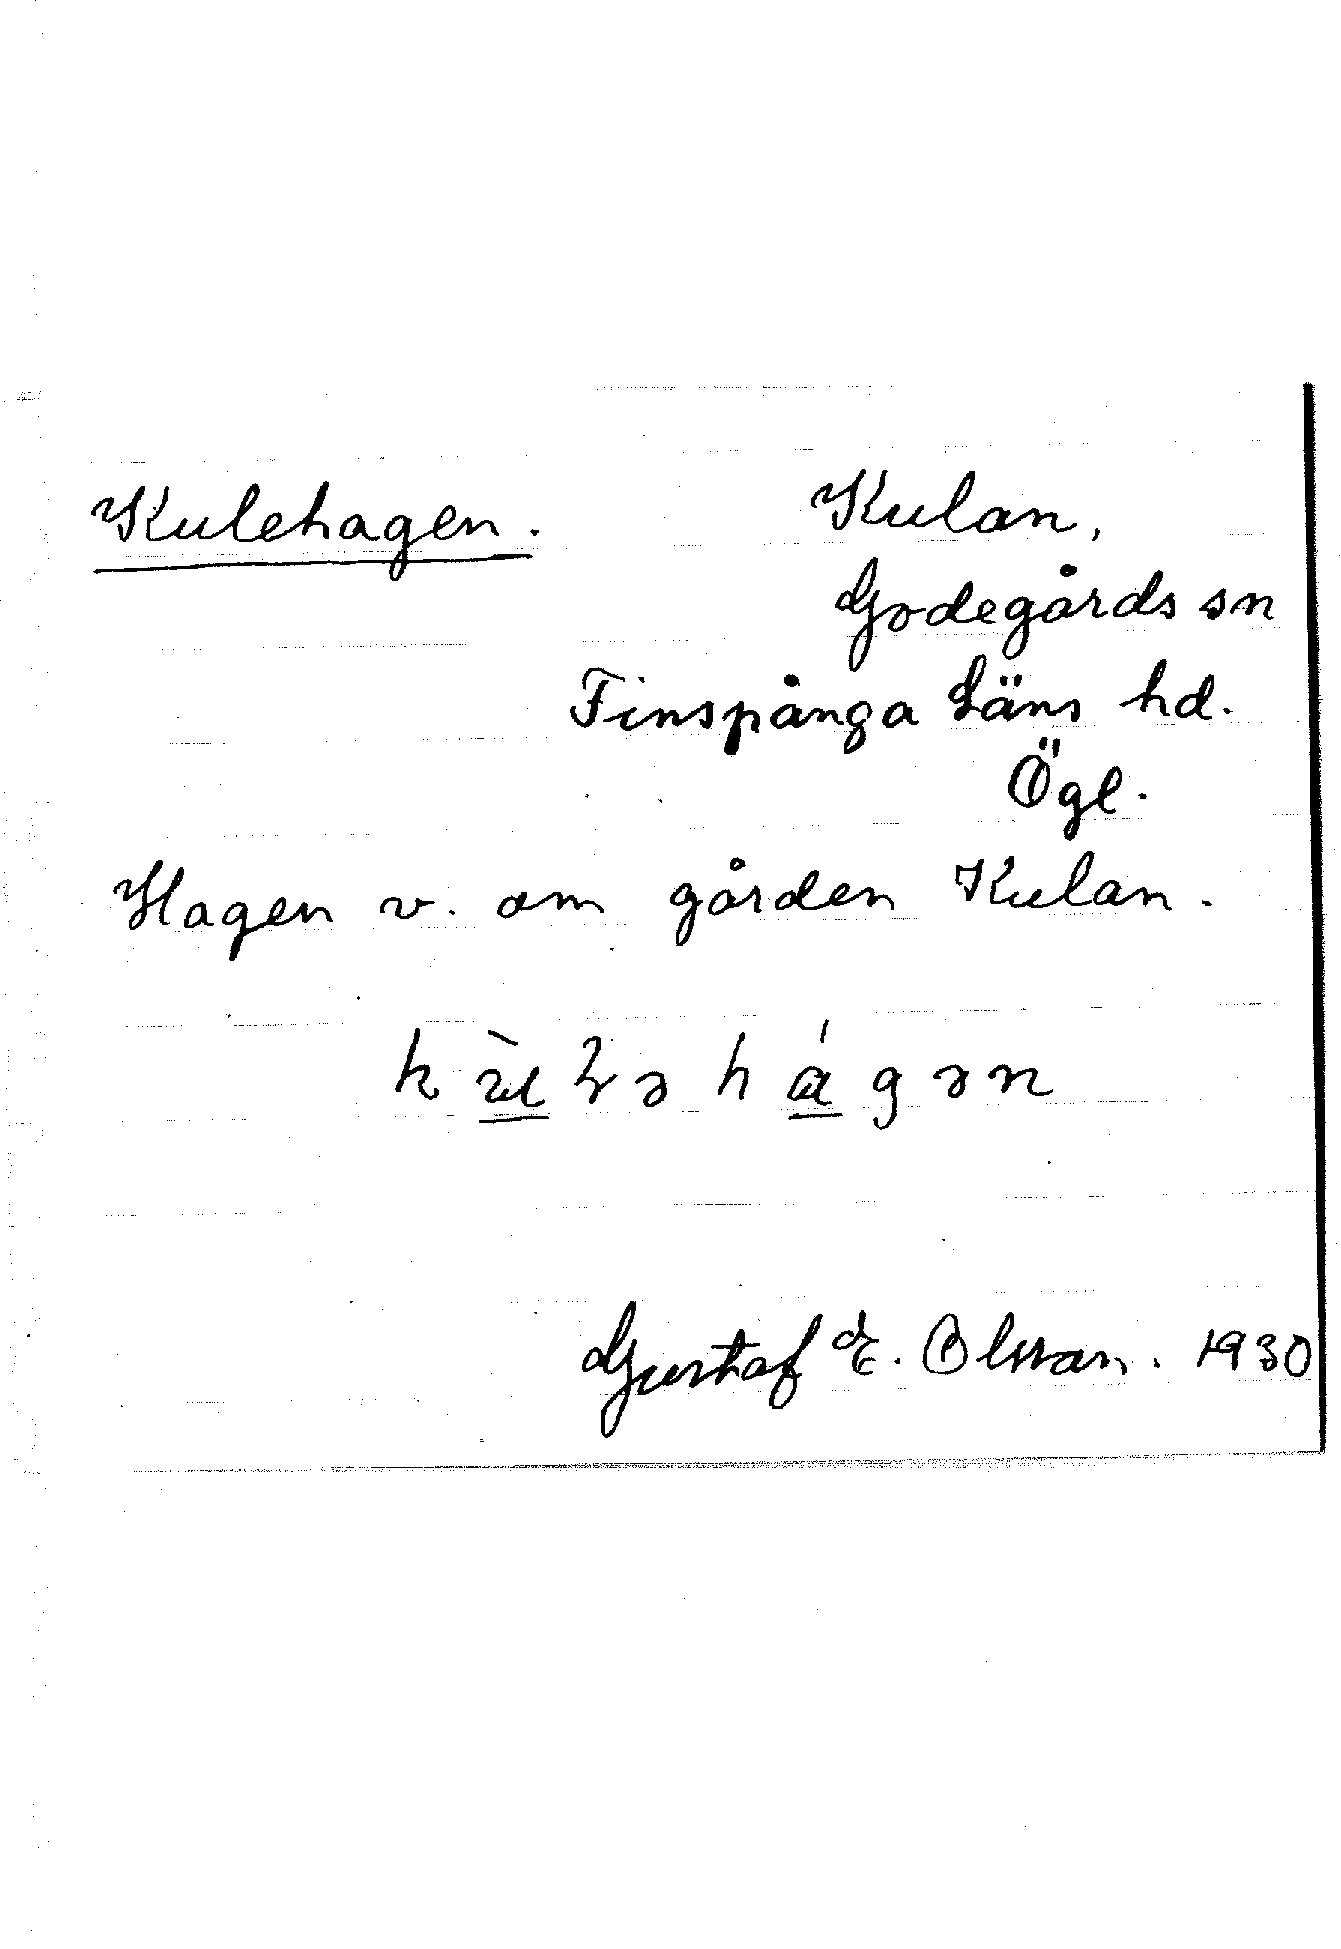 Kulehagen. Kulan,
Godegårds sn
Finspånga läns hd.
Ögl.
Hagen v. om gården Kulan.
Gustaf E. Olsson. 1930